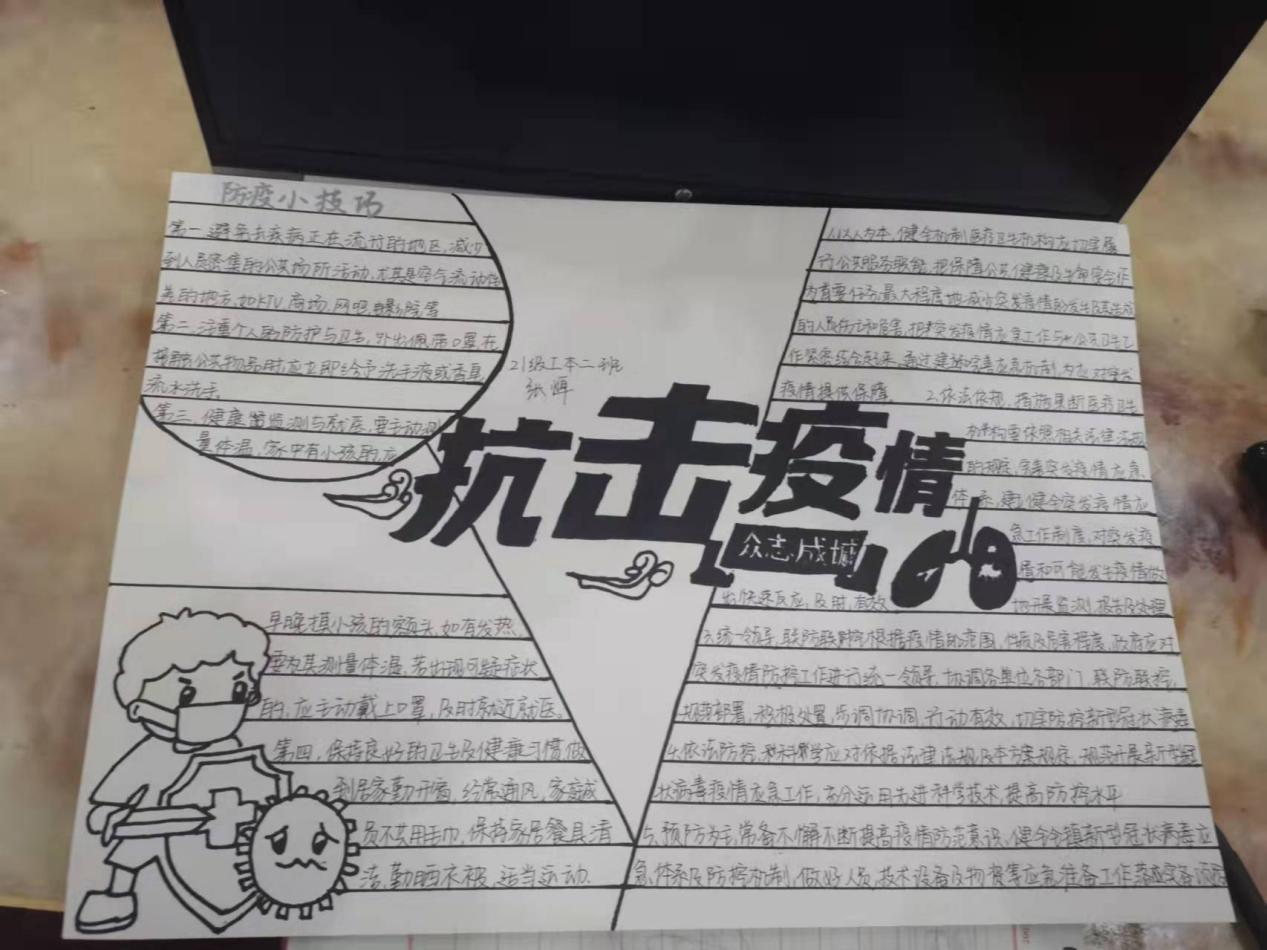 防疫小技巧
第一避免去疾病正在流行的地区,减少
到人员密集的公共场所活动,尤其是空气流动性
差的地方,如KTV,商场,网吧,电影院等
第二,注重个人的防护与卫生,外出佩带口罩,在
接触公共物品时应立即给予洗手液或香皂
流水洗手。
第三,健康监测与就医,要主动测
量体温,家中有小孩的,应
早晚摸小孩的额头,如有发热,
要为其测量体温,若出现可疑症状
的,应主动戴上口罩,及时就近就医。
第四,保持良好的卫生及健康习惯做
到居家勤开窗,经常通风,家庭成
员不共用毛巾,保持家居餐具清
洁,勤晒衣被,适当运动.
21级工本二班
张
抗击疫情
众志成城
1.以人为本,健全机制医疗卫生机构应切实履
行公共服务职能,把保障公众健康及生命安全作
为首要任务,最大程度地减少突发疫情的发生及其造成
的人员伤亡和危害,把突发疫情应急工作与公共卫生工
作紧密结合起来,通过建立完善应急机制,为应对突发
疫情提供保障
2.依法依规,措施果断医疗卫生
机构要依照相关法律法规
的规定,完善突发疫情应急
体系,建立健全突发疫情应
急工作制度,对突发疫
情和可能发生疫情做
出快速反应,及时,有效
地开展监测,报告及处理
3.统一领导,联防联控根据疫情的范围,性质及危害程度,政府应对
突发疫情防控工作进行统一领导,协调各单位各部门,联防联控,
规范部署,积极处置,步调协调,行动有效,切实防控新型冠状病毒
4.依法防控,科学应对依据法律法规及本方案规定,规范开展新型冠
状病毒疫情应急工作,充分运用先进科学技术,提高防控水平
5.预防为主,常备不懈不断提高疫情防范意识,健全全镇新型冠状病毒应
急体系及防控机制,做好人员,技术设备及物资等应急准备工作落实各项